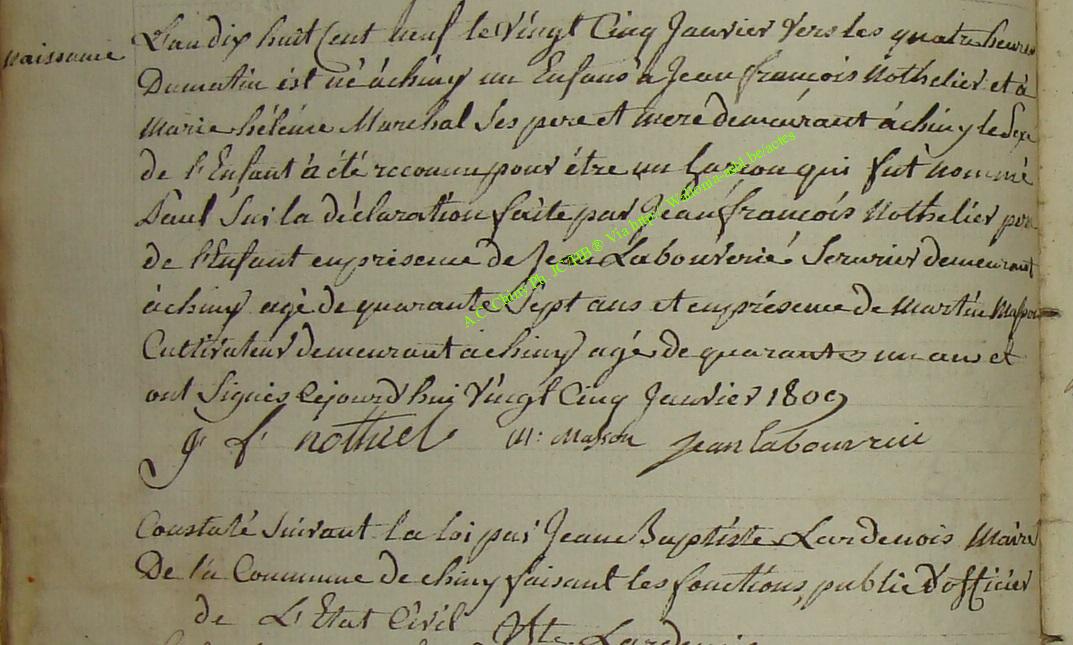 naissance
L'an dix huit Cent neuf le Vingt Cinq Janvier vers les quatre heures
Du matin est né à chiny un Enfans à Jean françois Nothelier et à
Marie héléine Marchal Ses pere et mere demeurant à chiny le Sexe
de l'Enfant à été reconnu pour être un Garçon qui fut nommé
Paul Sur la déclaration faite par Jean françois Nothelier pere
de l'Enfant en présence de Jean Labouverie Serurier demeurant
à chiny agé de quarante Sept ans et en présence de Martin Masson
Cultivateur demeurant a chiny agé de quarante un ans et
ont Signés Cejourd'hui Vingt Cinq Janvier 1809
j f nothiel M: Masson jean labouverie
Constaté Suivant la loi par Jean Baptiste Lardenois Maire
De la Commune de chiny faisant les fonctions public d'officier
de L'Etat Civil
Lardenois
A.C. Chiny Ph. JC HH ® Via http://Walloma-asbl.be/actes